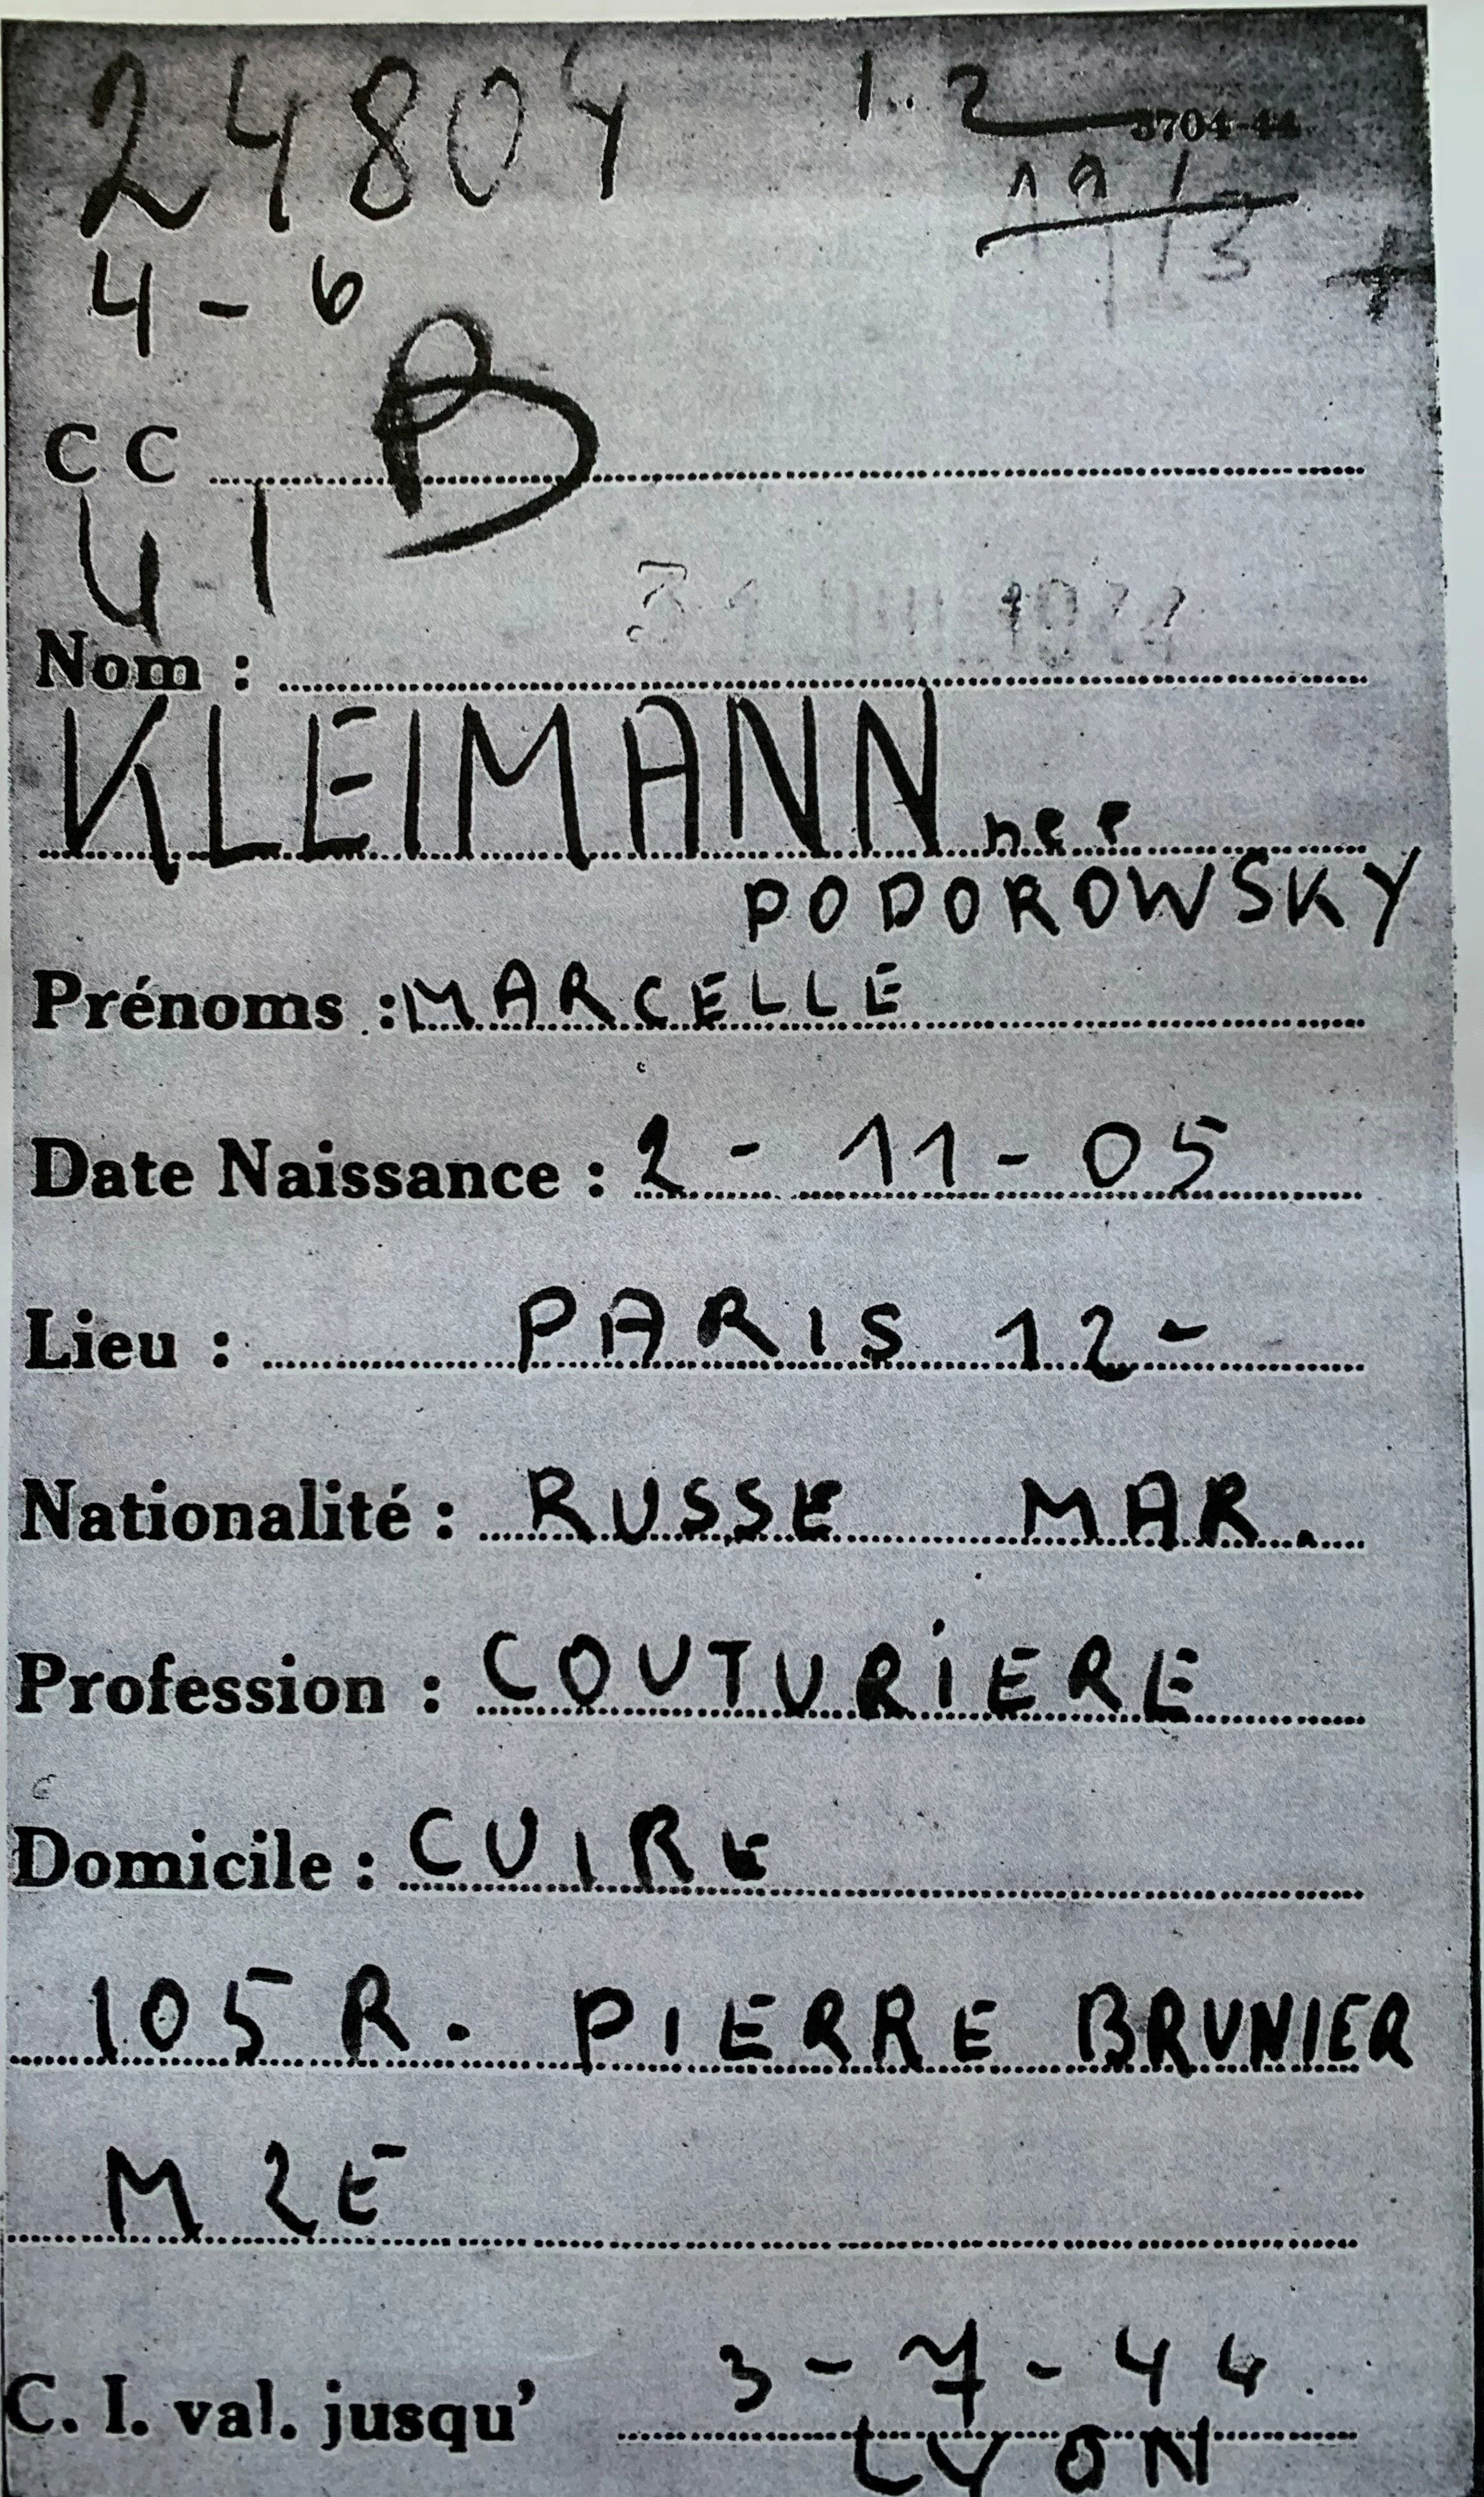 24804
1.. 2
3704-44
4 - 6
B
C C
U 1
Nom :
KLEIMANN née
PODOROWSKY
Prénoms : MARCELLE
Date Naissance : 2 - 11 - 05
Lieu : PARIS 12 -
Nationalité : RUSSE MAR.
Profession : COUTURIERE
Domicile : CUIRE
105 R. PIERRE BRUNIER
M 2E
C. I. val. jusqu' 3 - 7 - 44.
LYON